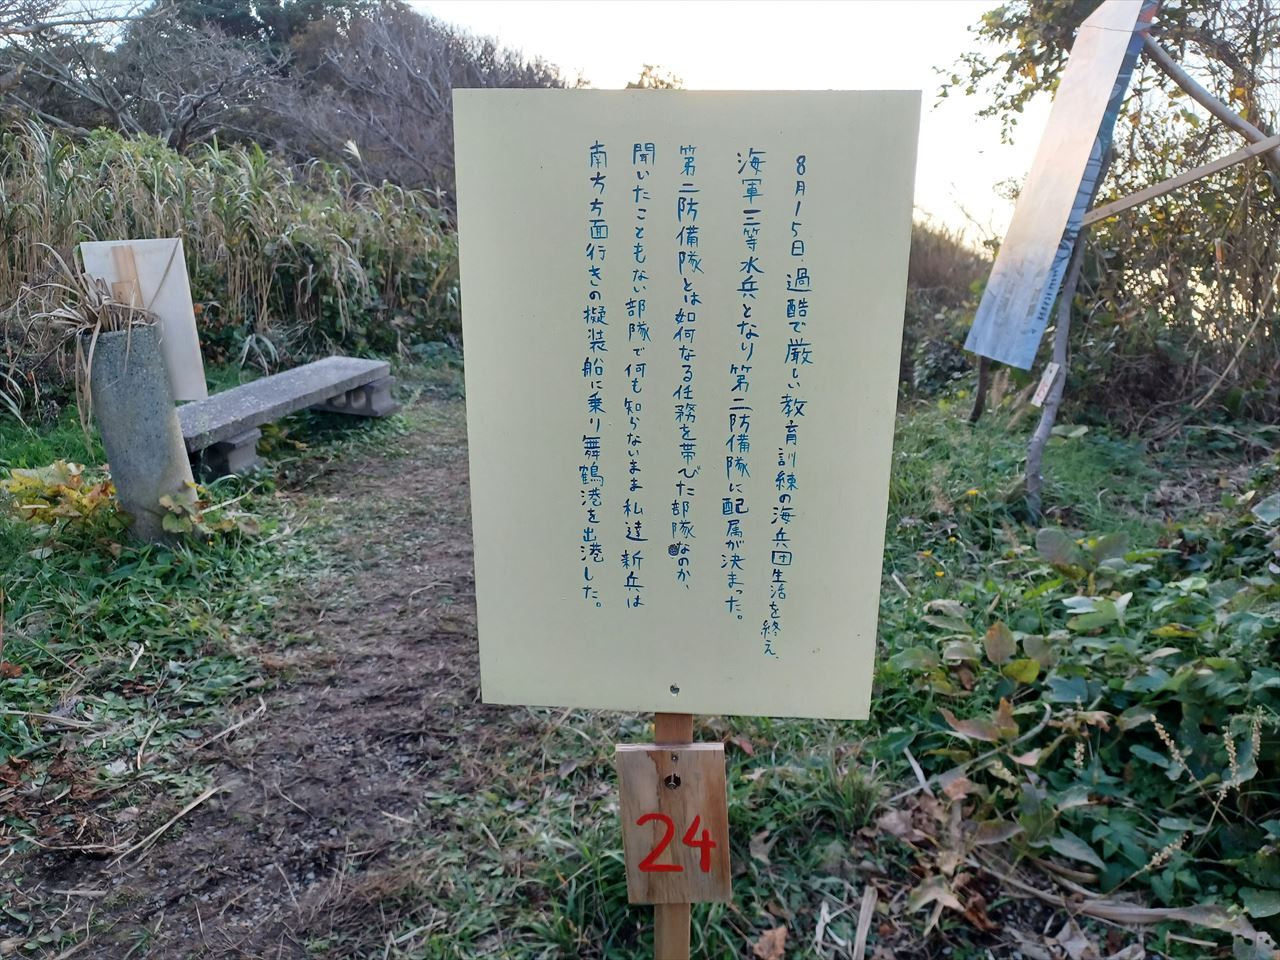 8月15日、過酷で厳しい教育訓練の海兵団生活を終え、
海軍三等水兵となり第二防備隊に配属が決まった。
第二防備隊とは如何なる任務を帯びた部隊なのか、
聞いたこともない部隊で何も知らないまま私達新兵は
南方方面行きの擬装船に乗り舞鶴港を出港した。
24